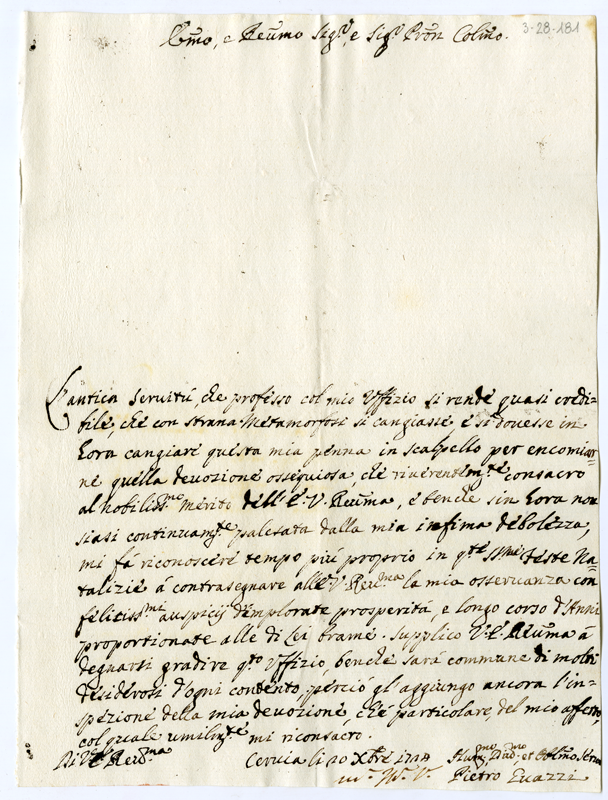 3-28-181
Ecc.mo, e Reu.mo Sig.r, e Sig.r Pron Colmo.
L'antica Seruitú, che professo col mio Vffizio si rende quasi credi=
bile, che con strana Metamorfosi si cangiasse, e si douesse in
hora cangiare questa mia penna in scalpello per encomiar=
ne quella deuozione ossequiosa, che riuerentem.te consacro
al nobiliss.mo merito dell'E. V. Reuma, e benche sin hora non
siasi continuam.te palesata dalla mia infima debolezza,
mi fá riconoscere tempo piú proprio in q.te SS.me Feste Na=
talizie á contrasegnare all'E V. Reu.ma la mia osseruanza con
feliciss.mi auspicij d'implorate prosperitá, e longo corso d'Anni
proportionate alle di Lei brame. Supplico V. E. Reuma á
degnarsi gradire q.to Vffizio benche sará commune di molti
desiderosi d'ogni contento, perció gl'aggiungo ancora l'in=
spezione della mia deuozione, che particolare, del mio affetto,
col quale umilm.te mi riconsacro.
Di V. E. Reu.ma Ceruia li 20 Xbre 1714 Hum.mo Diu.mo et Obl.mo Seru
Pietro Euazzi